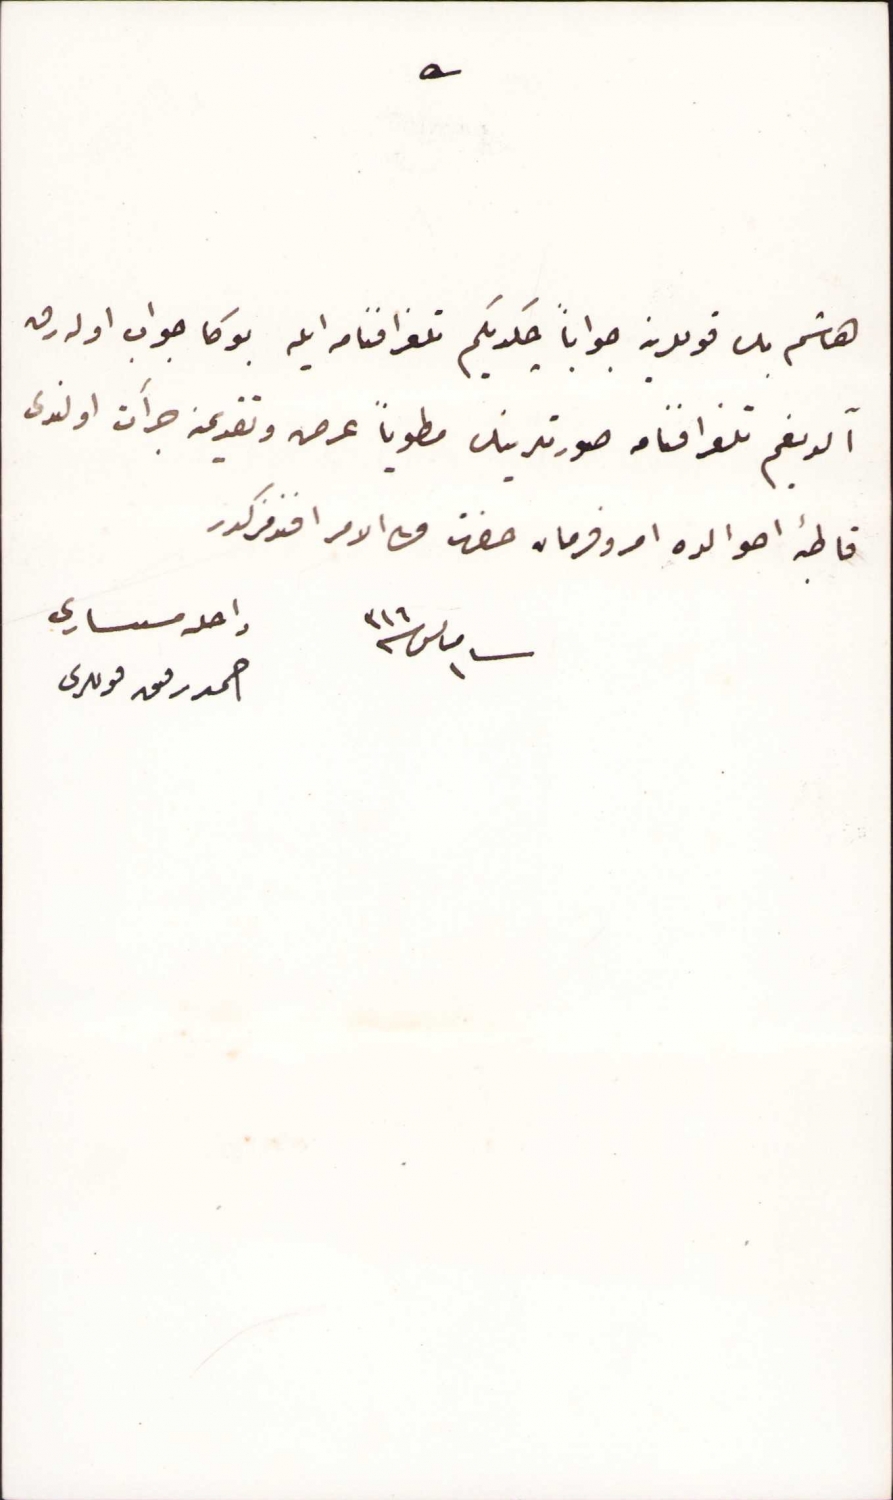 هاشم بك قوللرينه جواباً چكديكم تلغرافنامه ايله بوكا جواب اوله رق
آلديغم تلغرافنامه صورتلرينك مطوياً عرض وتقديمنه جرأت اولندى
قاطبهٔ احوالده امر وفرمان حضرت ولى الامر افندمزكدر
مايس ٣١٦
احمد رفيق قوللرى